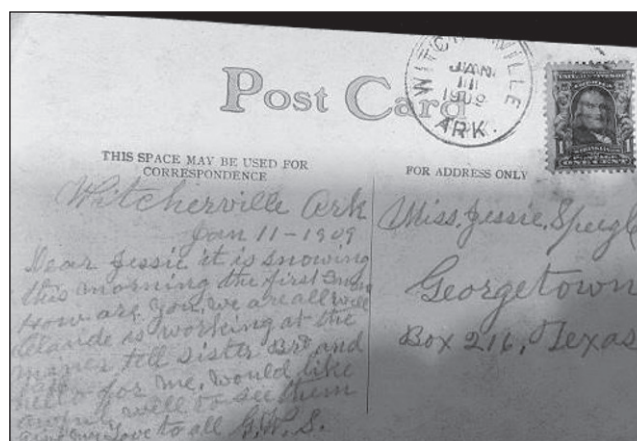 Post Card
WITCHERVILLE
JAN
11
1909
ARK.
1
ONE CENT
THIS SPACE MAY BE USED FOR
CORRESPONDENCE
FOR ADDRESS ONLY
Witcherville Ark
Jan 11-1909
Dear Jessie it is snowing
this morning the first Snow
How are you, we are all well
Claude is working at the
tell sister Bro, and
hello for me. would like
well to see them
love to all G.W.S.
Miss, Jessie, Speigl
Georgetown
Box 216, Texas